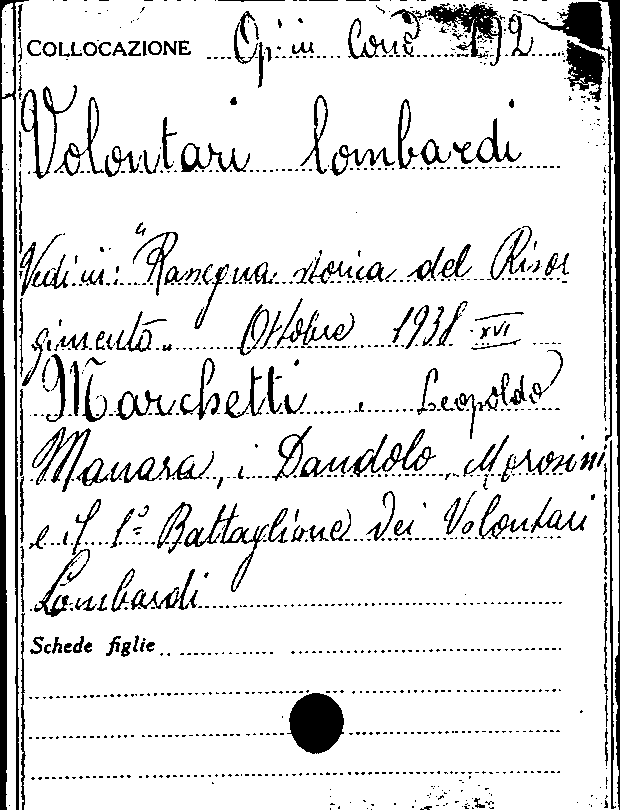 COLLOCAZIONE Op: in Cons 192
Volontari lombardi
Vedi in: "Rassegna storica del Risor
gimento„ Ottobre 1938 XVI
Marchetti, Leopoldo
Manara, i Dandolo, Morosini
e il 1º Battaglione dei Volontari
Lombardi
Schede figlie